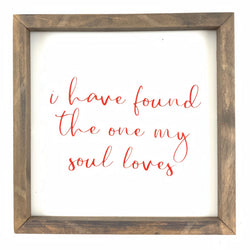 i have found
the one my
soul loves